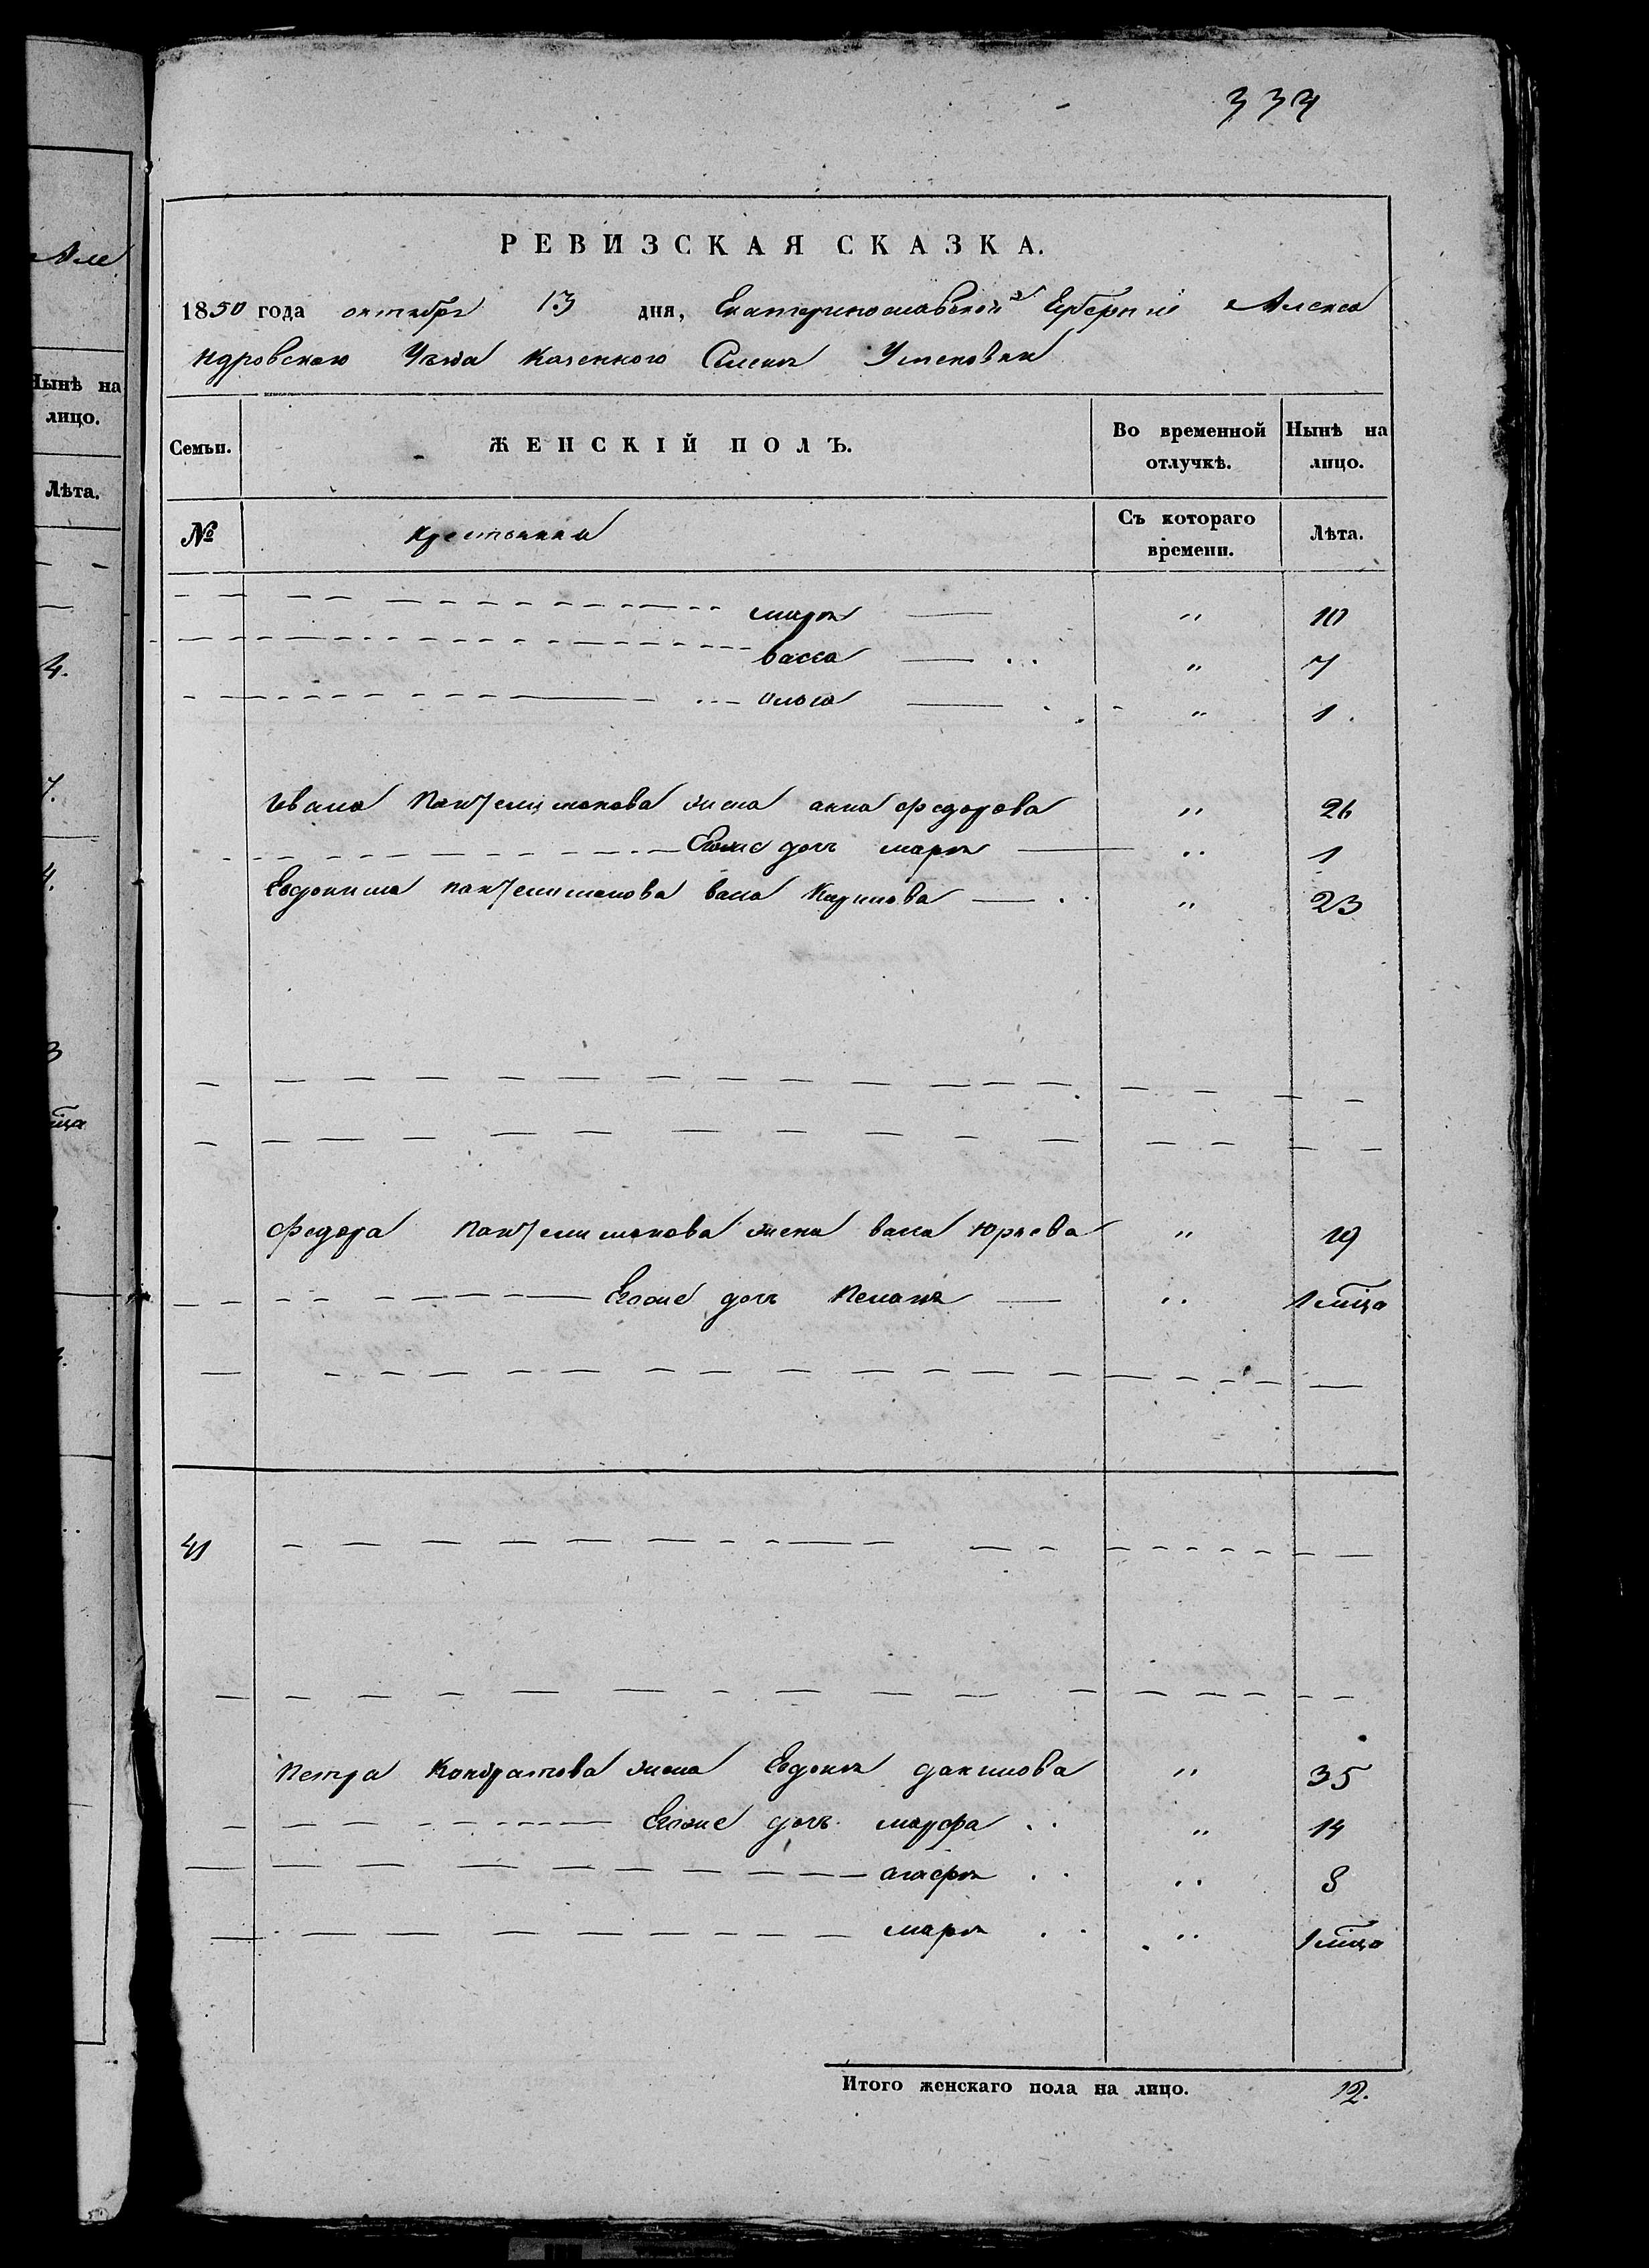 334
РЕВИЗСКАЯ СКАЗКА.
1850 года октября 13 дня, Екатеринославской Губернiи Алекса
ндровскаго Уезда Казенного Селенiя
Семьи. ЖЕНСКІЙ ПОЛЪ. Во временной отлучкѣ. Нынѣ на лицо.
№ крестьянки Съ котораго времени. Лѣта.
марiя " 10
васса " 7
" 1
Ивана Пантелимонова жена анна федорова " 26
Егоже дочь марiя " 1
Евдокима пантелимонова васса Кирилова " 23
федора Пантелимонова жена васса Юрьева " 19
Егоже дочь Пелагiя " 1 мсца
41
Петра Кондратова жена Евдокiя данилова " 35
Егоже дочь марфа " 14
агафiя " 8
марiя " 1 мсца
Итого женскаго пола на лицо. 12.
Але
Нынѣ на
лицо.
Лѣта.
4.
7.
4.
3